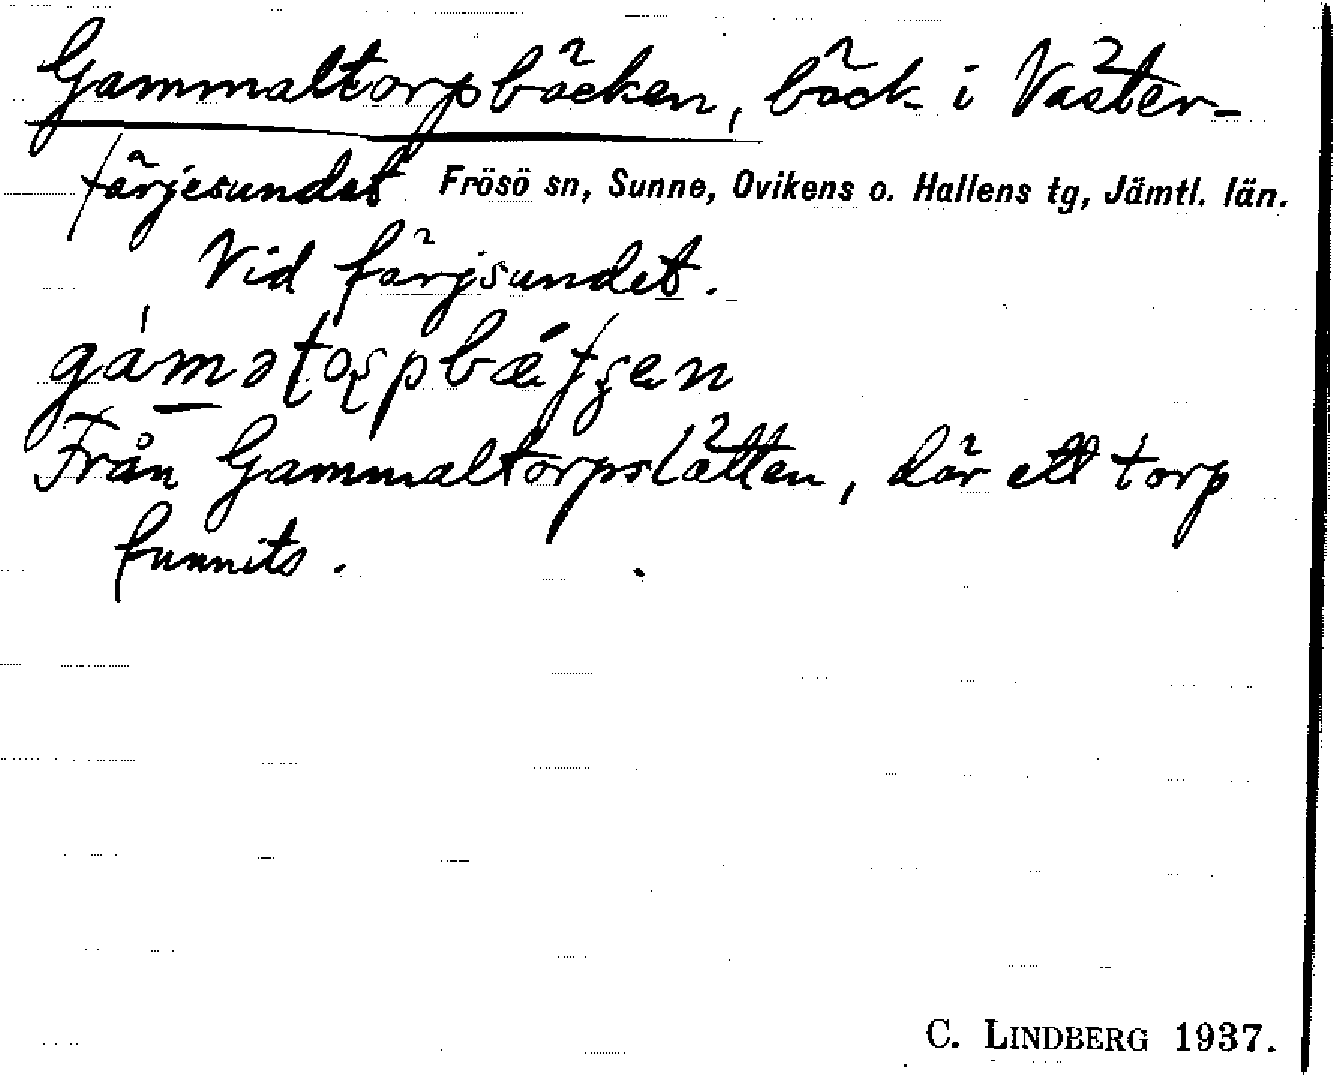 Gammaltorpbäcken, bäck i Väster-
färjesundet Frösö sn, Sunne, Ovikens o. Hallens tg, Jämtl. län.
Vid färjsundet.
Från Gammaltorpslätten, där ett torp
funnits.
C. LINDBERG 1937.